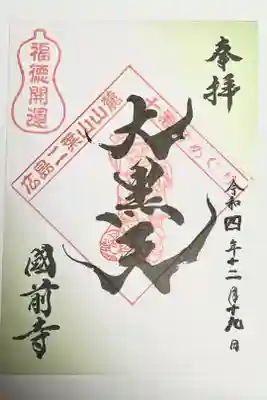 奉拝
福徳開運
大黒天
広島二葉山山麓
令和四年十二月十九日
國前寺